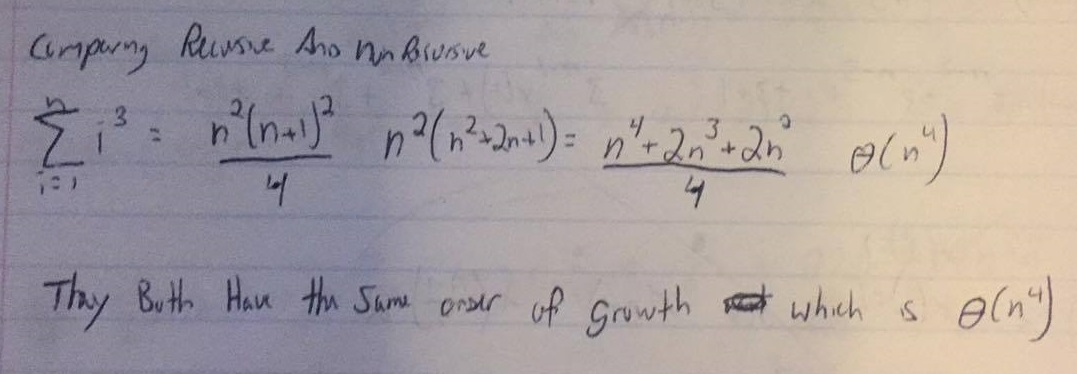 Comparing Recursive And Non Recursive
n∑i=1 i³ = n²(n+1)²/4 n²(n²+2n+1) = n⁴+2n³+2n²/4 Θ(n⁴)
They Both Have the Same order of Growth which is Θ(n⁴)